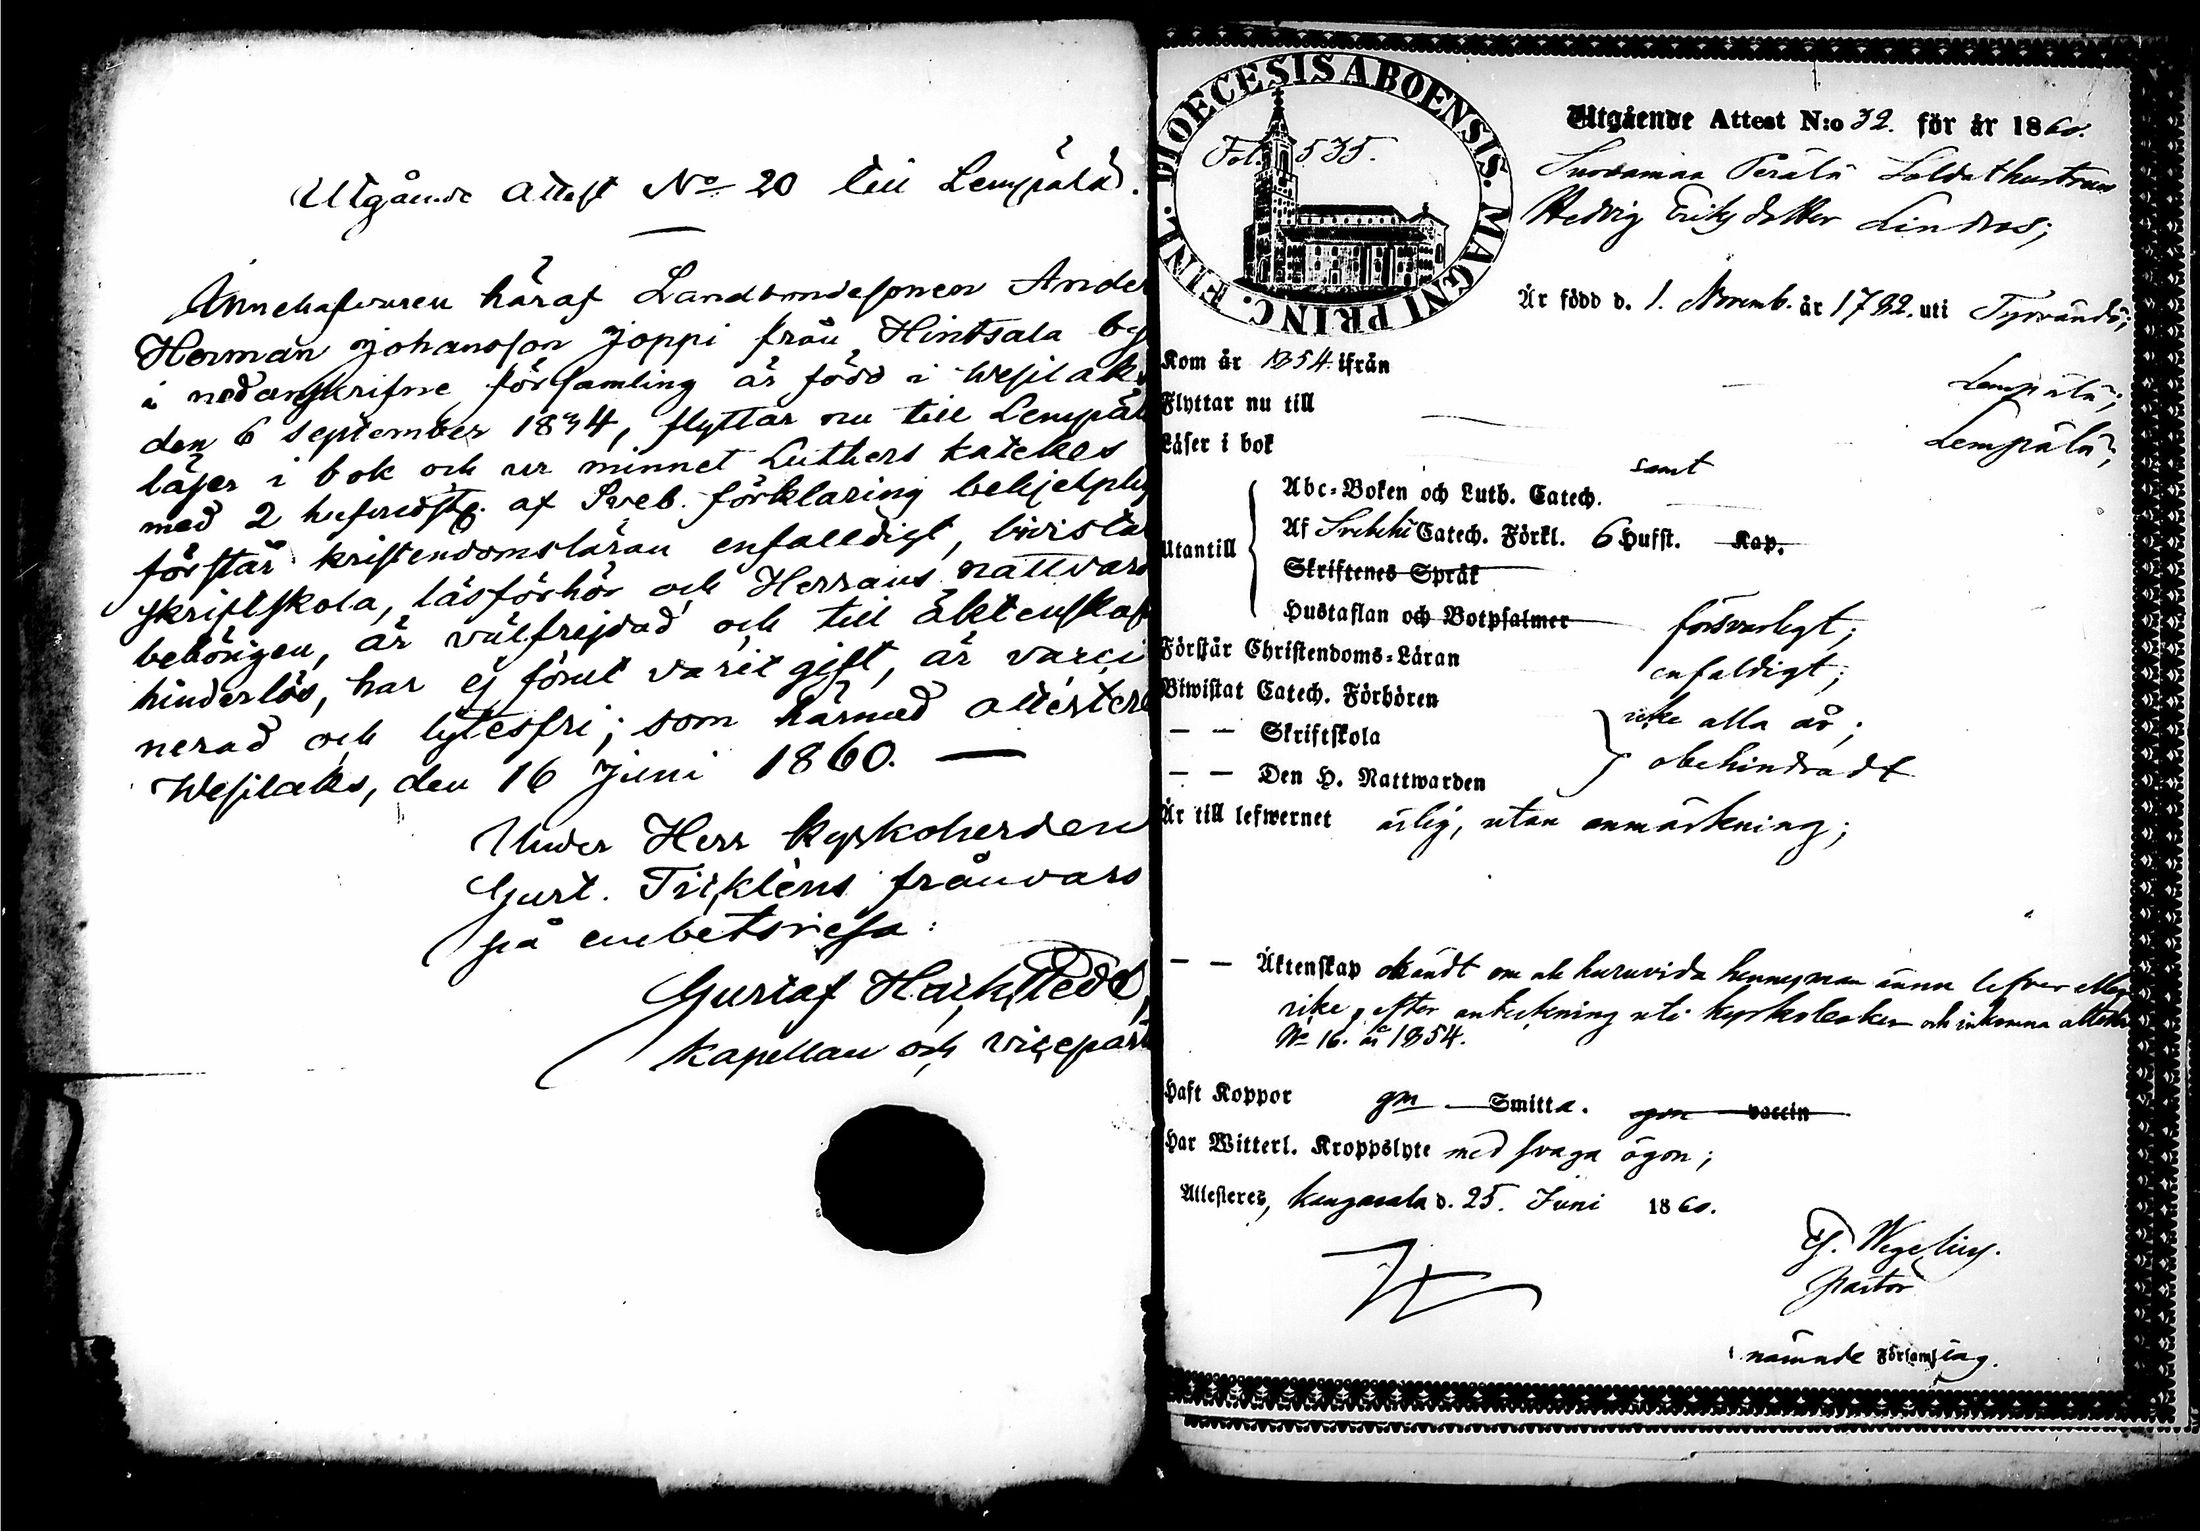 Utgående Attest No 20 till Lempälä.
Innehafvaren häraf Landbondesonen Ander
Herman Johansson Joppi från Hintsala by
i nedanskrifne församling är född i Wesilaks
den 6 September 1834, flyttar nu till Lempälä
läser i bok och ur minnet Luthers katekes
med 2 hufvudst. af Sveb. förklaring behjelplig
förstår kristendomsläran enfaldigt, bivistat
skriftskola, läsförhör och Herrans nattvard
behörigen, är välfrejdad och till äktenskap
hinderlös, har ej förut varit gift, är vacci
nerad och lytesfri; som härmed attestera
Wesilaks, den 16 Juni 1860.
Under Herr Kyrkoherden
Gust. Ticklèns frånvaro
på embetsresa:
Gustaf Hackstedt,
Kapellan och vicepast
DIOECESIS ABOENSIS. MAGNI PRINC. FINL.
Fol. 535.
Utgående Attest N:o 32. för år 1860.
Suoramaa Perälä Soldathustrun
Hedvig Eriksdotter Lindroos;
Är född d. 1. Novemb. år 1792. uti Tyrvändö;
Kom år 1854 ifrån Lempälä;
Flyttar nu till Lempälä;
Läser i bok samt
Utantill
Abc-Boken och Luth. Catech.
Af Svebelii Catech. Förkl. 6 Hufst. Kap.
Skriftenes Språk
Hustaflan och Botpsalmer försvarligt;
Förstår Christendoms-Läran enfaldigt;
Biwistat Catech. Förhören icke alla år;
— — Skriftskola
— — Den H. Nattwarden obehindradt
Är till lefwernet ärlig, utan anmärkning;
— — Äktenskap okändt om och huruvida hennes man ännu lefver eller
icke, efter anteckning uti kyrkoboken och inkomna attesten
No 16. år 1854.
Haft Koppor gm Smitta. gm vaccin
Har Witterl. Kroppslyte med svaga ögon;
Attesteres, Kangasala d. 25. Juni 1860.
G. Wegelius.
Pastor
i nämnde Församling.